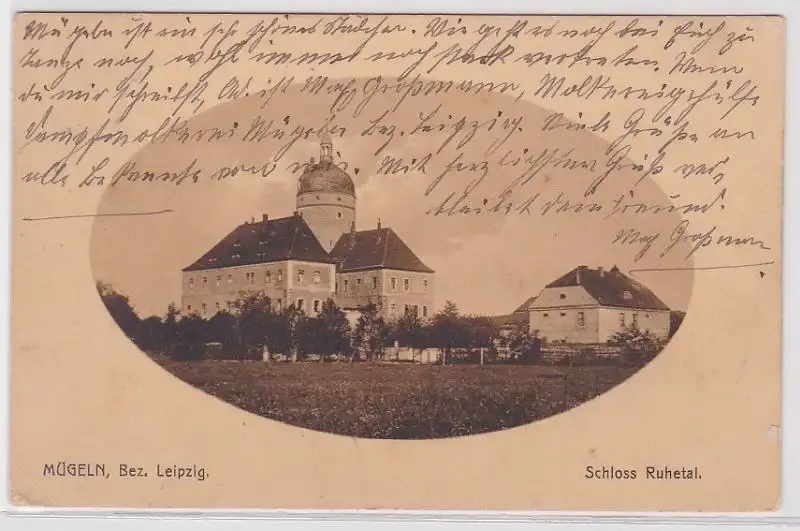 Mügeln ist ein sehr schönes Städchen. Wie geht es noch bei Euch zu
Hause noch, wohl immer noch stark vertreten. Wenn
du mir schreibst, Ad. ist Max Großmann, Molkereigehülfe
Dampfmolkerei Mügeln Bez. Leipzig. Viele Grüße an
alle Bekannte von mir. Mit herzlichsten Gruß ver,
bleibt dein Freund.
Max Großmann
MÜGELN, Bez. Leipzig.
Schloss Ruhetal.